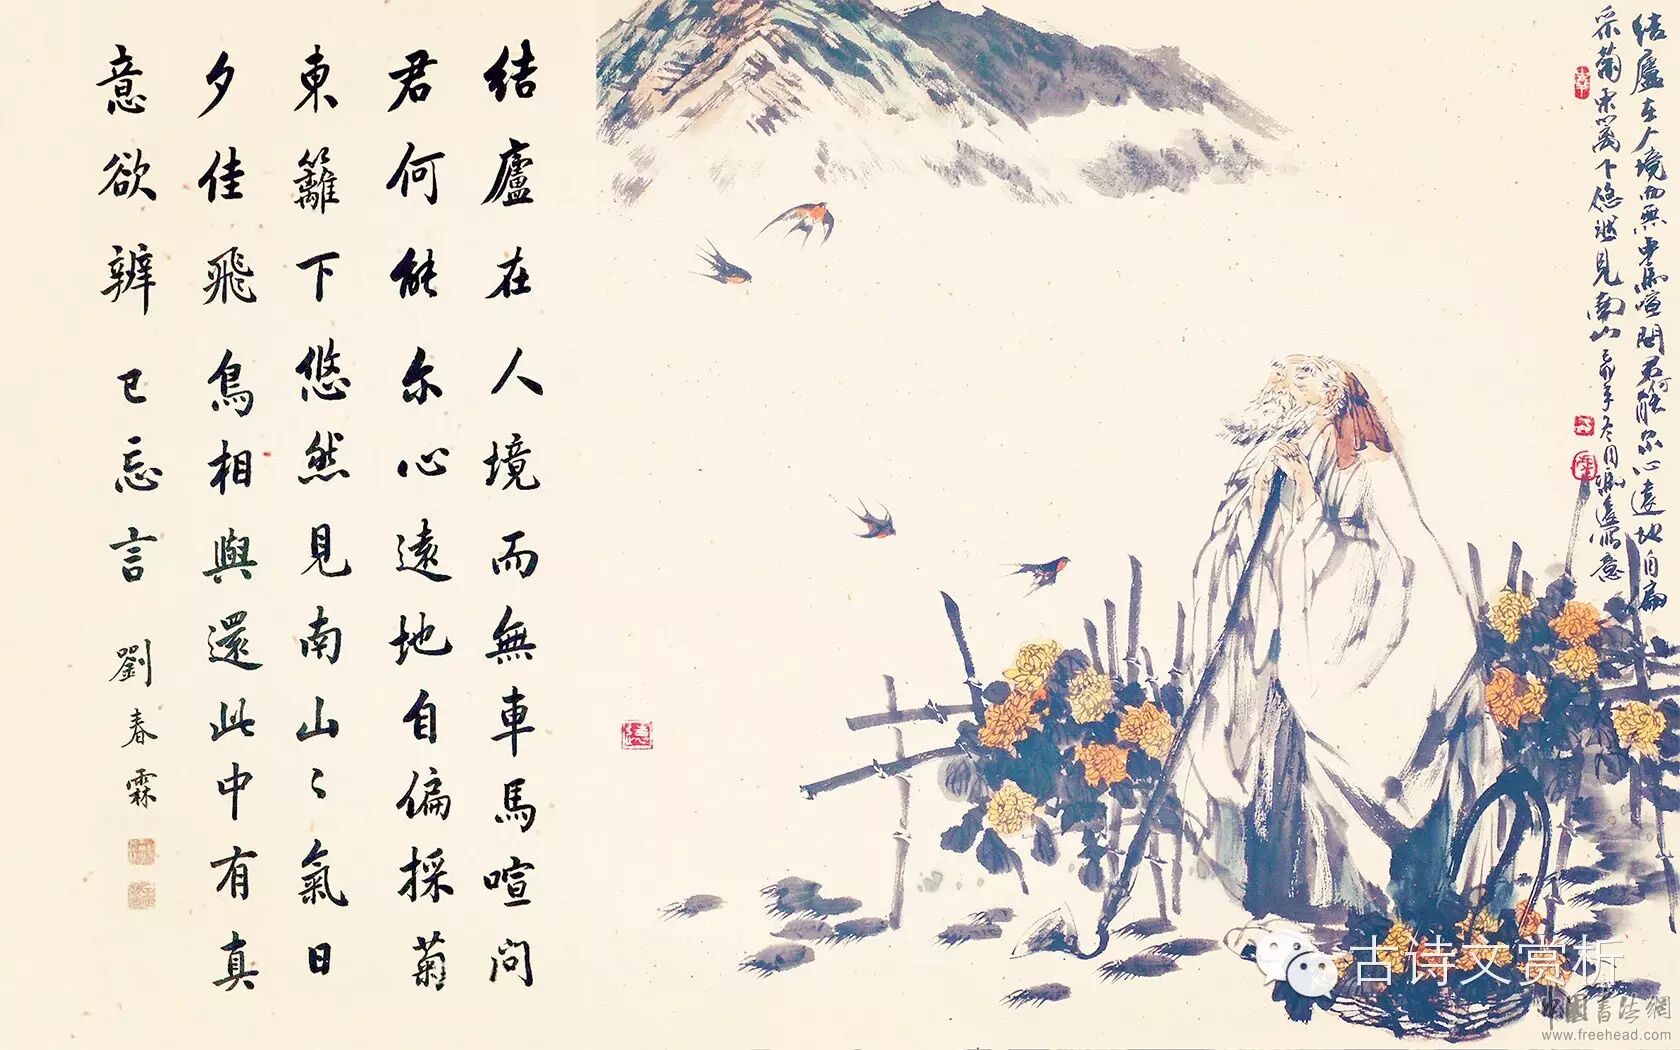 結廬在人境而無車馬喧問
君何能尔心遠地自偏採菊
東籬下悠然見南山〻氣日
夕佳飛鳥相與還此中有真
意欲辨已忘言 劉春霖
结廬在人境而無車馬喧問君何能尔心遠地自偏
采菊東篱下悠然見南山 年冬月
古诗文赏析
中国书法網
www.freehead.com